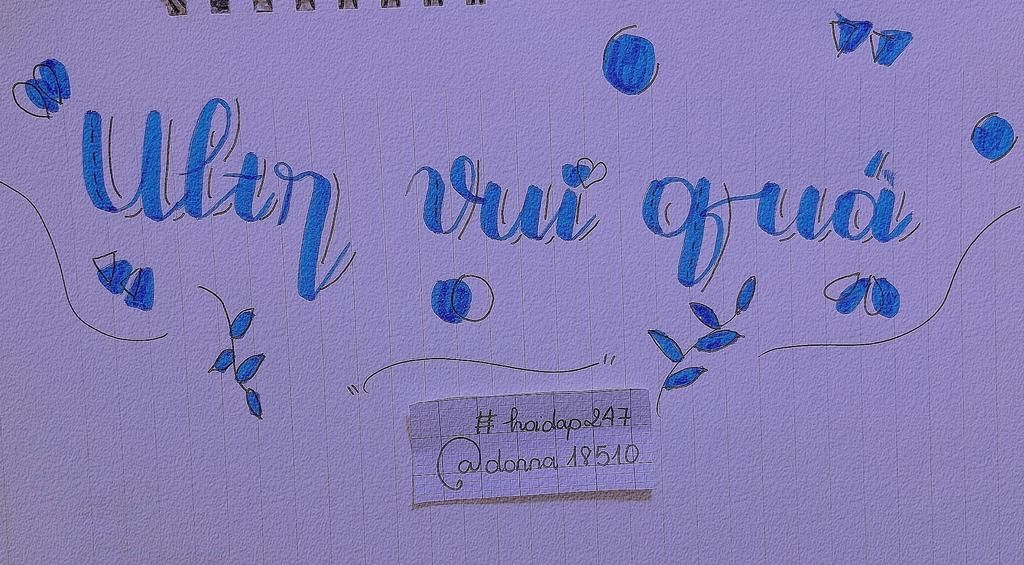 Ultr vui quá
# hoidap247
@donna 18510